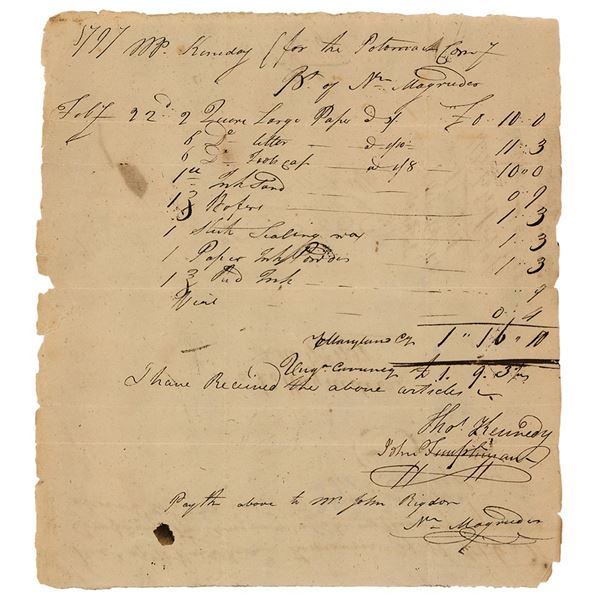 1797 Mr. Kennedy (for the Potomack Comy
Bt. of Nn. Magruder
Feby 22d. 2 Quire Large Paper a 5/ £0 10 0
6 Do. letter a 1/10½ 11 3
6 Do. Foolscap a 1/8 10 0
1 lb Ink Sand 0 9
1 Wafers 1 3
1 Stick Sealing wax 1 3
1 Paper Ink Powder 1 3
1 Red Ink 9
Vial 0 4
Maryland Cy 1 " 16 " 10
Currency £ 1. 9. 5
I have Received the above articles
Thos. Kennedy
John Templeman
Pay the above to Mr. John Rigdon
Nn. Magruder